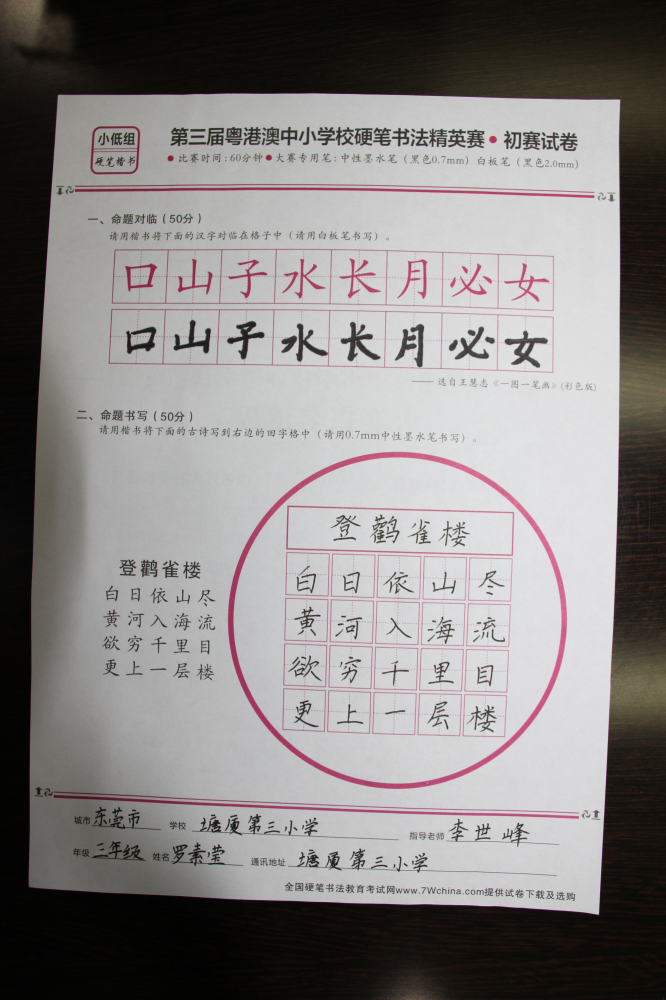 小低组
硬笔楷书
第三届粤港澳中小学校硬笔书法精英赛•初赛试卷
●比赛时间:60分钟●大赛专用笔:中性墨水笔(黑色0.7mm)白板笔(黑色2.0mm)
一、命题对临(50分)
请用楷书将下面的汉字对临在格子中(请用白板笔书写)。
口山子水长月必女
口山子水长月必女
——选自王慧志《一图一笔画》(彩色版)
二、命题书写(50分)
请用楷书将下面的古诗写到右边的田字格中(请用0.7mm中性墨水笔书写)。
登鹳雀楼
白日依山尽
黄河入海流
欲穷千里目
更上一层楼
登鹳雀楼
白日依山尽
黄河入海流
欲穷千里目
更上一层楼
城市 东莞市 学校 塘厦第三小学 指导老师 李世峰
年级 三年级 姓名 罗素莹 通讯地址 塘厦第三小学
全国硬笔书法教育考试网www.7Wchina.com提供试卷下载及选购